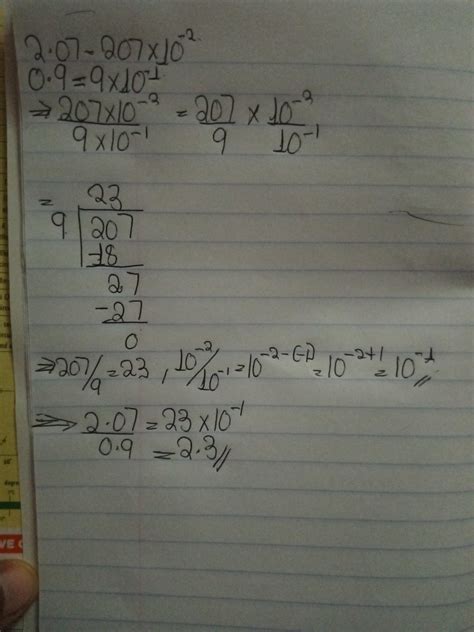 2.07 - 207×10⁻²
0.9 = 9×10⁻¹
⇒ 207×10⁻² / 9×10⁻¹ = 207/9 × 10⁻² / 10⁻¹
= 23
9 207
-18
27
-27
0
⇒ 207/9 = 23 , 10⁻²/10⁻¹ = 10⁻²⁻⁽⁻¹⁾ = 10⁻²⁺¹ = 10⁻¹//
⇒ 2.07/0.9 = 23 ×10⁻¹
= 2.3//